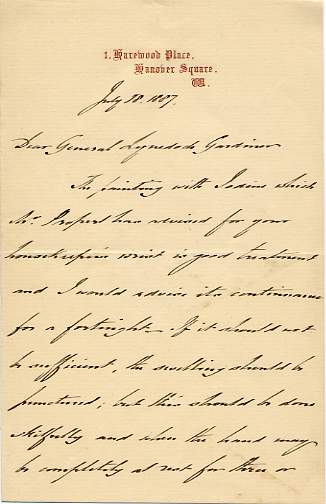 1, Harewood Place,
Hanover Square.
W.
July 1887.
Dear General Lynedoch Gardiner
The painting with Iodine which
Mr. Propert has advised for your
housekeeper's wrist is good treatment
and I would advise its continuance
for a fortnight — If it should not
be sufficient, the swelling should be
punctured; but this should be done
skilfully and when the hand may
be completely at rest for three or